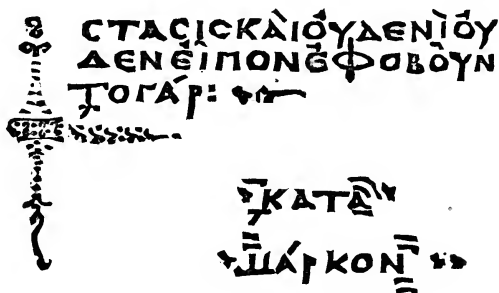 ϹΤΑϹΙϹΚΑῚΟΥ̓ΔΕΝῚΟΥ̓
ΔΕΝΕἾΠΟΝἘΦΟΒΟΥ͂Ν
ΤΟΓΆΡ:
ΚΑΤᾺ
ΜΆΡΚΟΝ